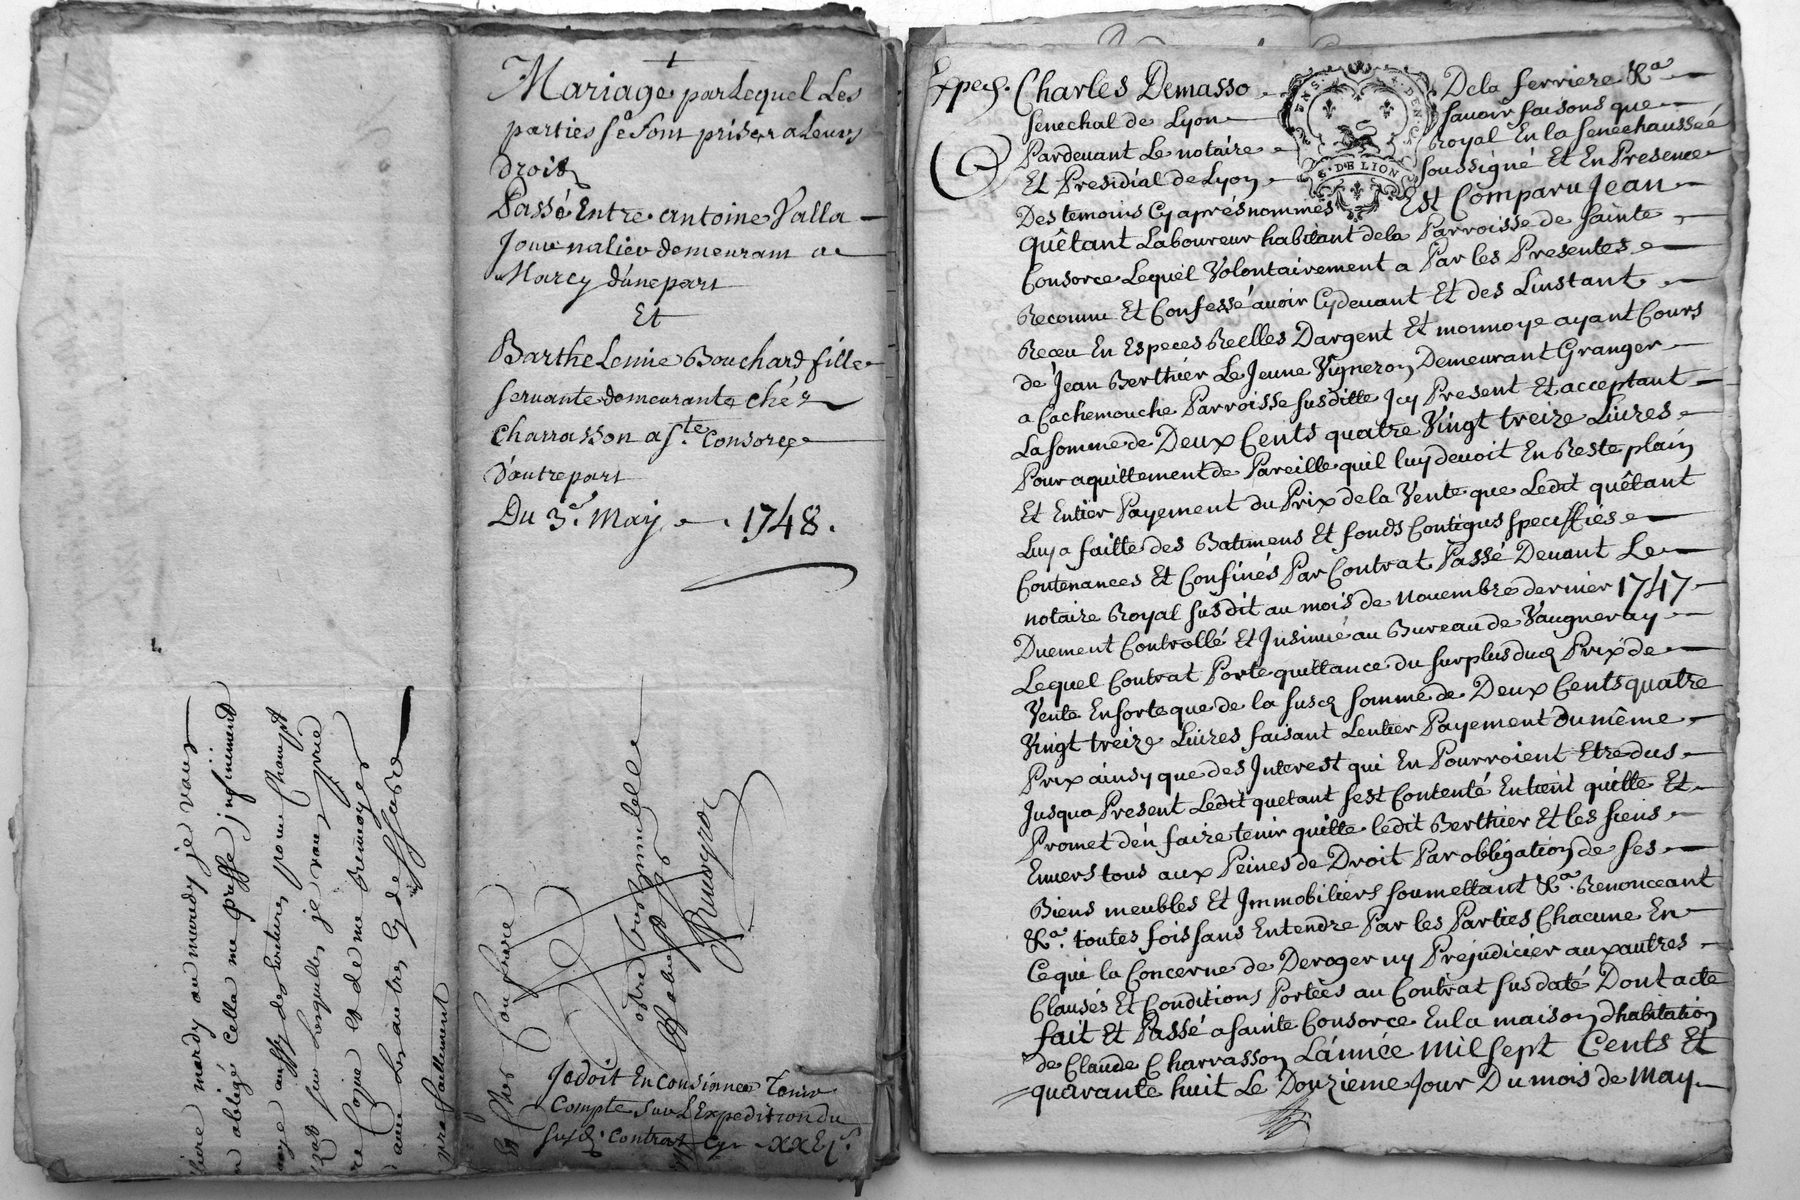 Mariage parlequel Les
parties se sont prises a Leurs
droits
Passé Entre antoine Valla
Journalier demeurant a
Marcy d'une part
Et
Barthelemie Bouchard fille
servante demeurante chéz
Charrasson a Ste Consorce
D'autre part
Du 3e. May 1748.
mardy ou mercredy je vous
obligé Cella me presse jnfiniment
aussy des Ecritures pour Champt
pour Lesquelles je vous prie
Copie et de me Envoyer
avec Les autres cy
Cher Confrere
votre tres humble
Je doit En consiance Tenir
Compte sur L'Expedition du
susd. contrat cy XX
Exped. Charles Demasso Dela ferriere &a
senechal de Lyon savoir faisons que
Pardevant Le notaire Royal En la senéchaussée
Et Presidial de Lyon soussigné Et En Presence
Des temoins Cyaprés nommés Est Comparu Jean
S. DE LION
quêtant Laboureur habitant dela Parroisse de sainte
Consorce Lequel Volontairement a Par les Presentes
Reconnu Et Confessé avoir Cydevant Et des Linstant
Receu En Especes Reelles Dargent Et monnoye ayant Cours
de Jean Berthier Le Jeune Vigneron Demeurant Granger
a Cachemouche Parroisse susditte Icy Present Et acceptant
La somme de Deux Cents quatre Vingt treize Livres
Pour aquittement de Pareille quil luy devoit En Reste plain
Et Entier Payement du Prix de la Vente que Ledit quêtant
Luy a faitte des Batimens Et fonds Contigus speciffiés
Contenancés Et Confinés Par Contrat Passé Devant Le
notaire Royal susdit au mois de Novembre dernier 1747
Duement Controllé Et Insinué au Bureau de Vaugneray
Lequel Contrat Porte quittance du surplus dud Prix de
Vente Ensorte que de la susd somme de Deux Cents quatre
Vingt treize Livres faisant Lentier Payement Du même
Prix ainsy que des Interest qui En Pourroient Etre dus
Jusqua Present Ledit quetant sest Contenté En tient quitte Et
Promet dén faire tenir quitte ledit Berthier Et les siens
Envers tous aux Peines de Droit Par obbligation de ses
Biens meubles Et Immobiliers soumettant &a. Renonceant
&a. toutes fois sans Entendre Par les Parties Chacune En
Ce qui la Concerne de Deroger ny Prejudicier aux autres
Clauses Et Conditions Portées au Contrat susdaté Dont acte
fait Et Passé a sainte Consorce En la maison dhabitation
de Claude Charrasson Lánnée mil sept Cents Et
quarante huit Le Douzieme Jour Du mois de May